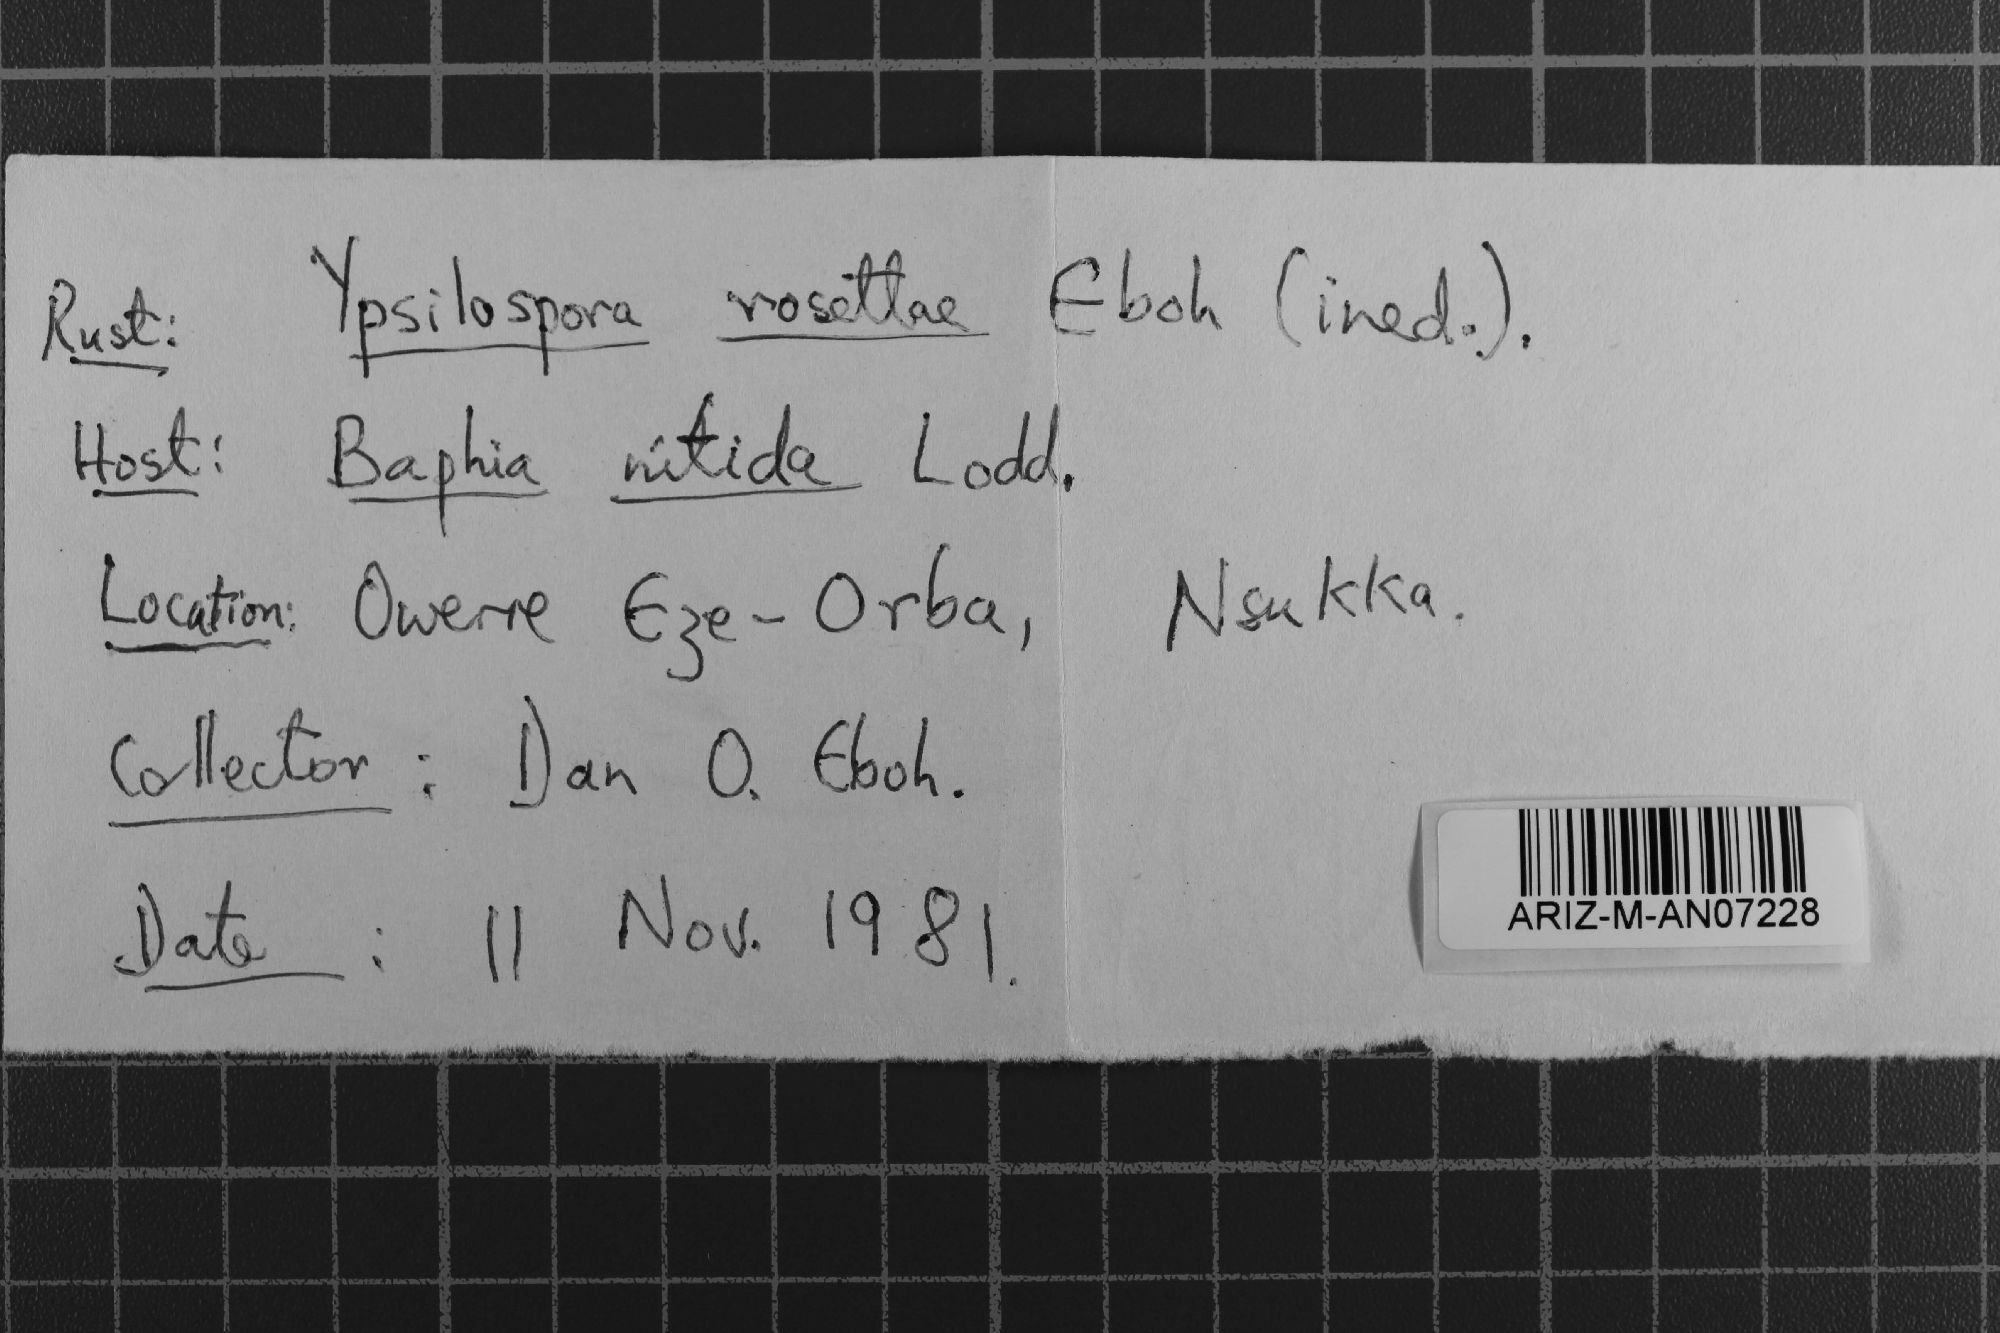 Rust: Ypsilospora rosettae Eboh (ined.).
Host: Baphia nitida Lodd.
Location: Owerre Eze-Orba, Nsukka.
Collector: Dan O. Eboh.
Date: 11 Nov. 1981.
ARIZ-M-AN07228